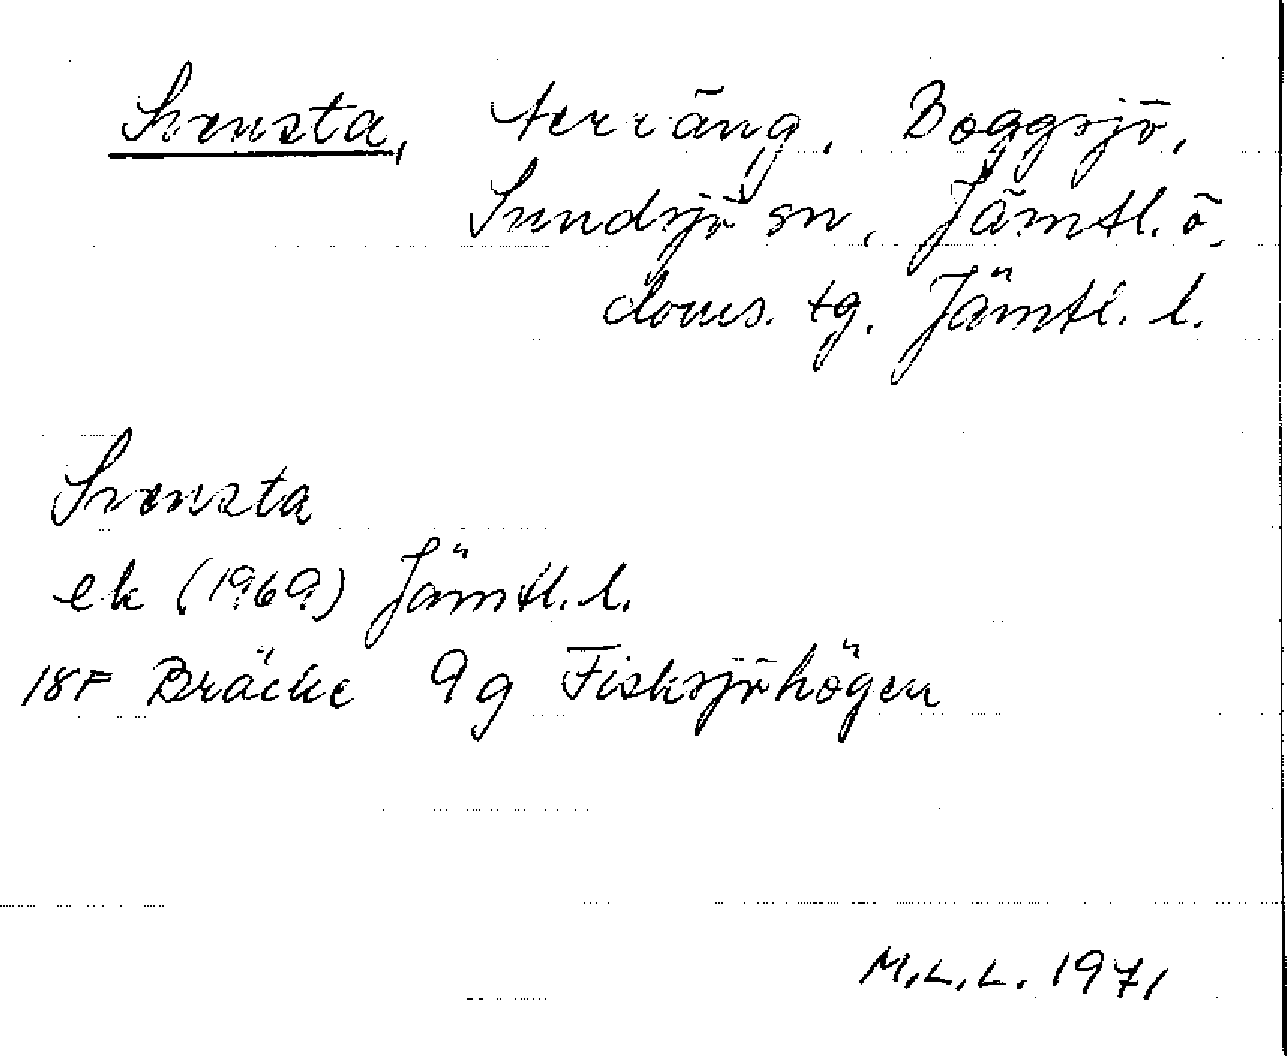 Svensta, terräng, Boggsjö,
Sundsjö sn, Jämtl. ö.
doms. tg. Jämtl. l.
Svensta
ek (1969) Jämtl. l.
18F Bräcke 9g Fisksjöhögen
M.L.L. 1971